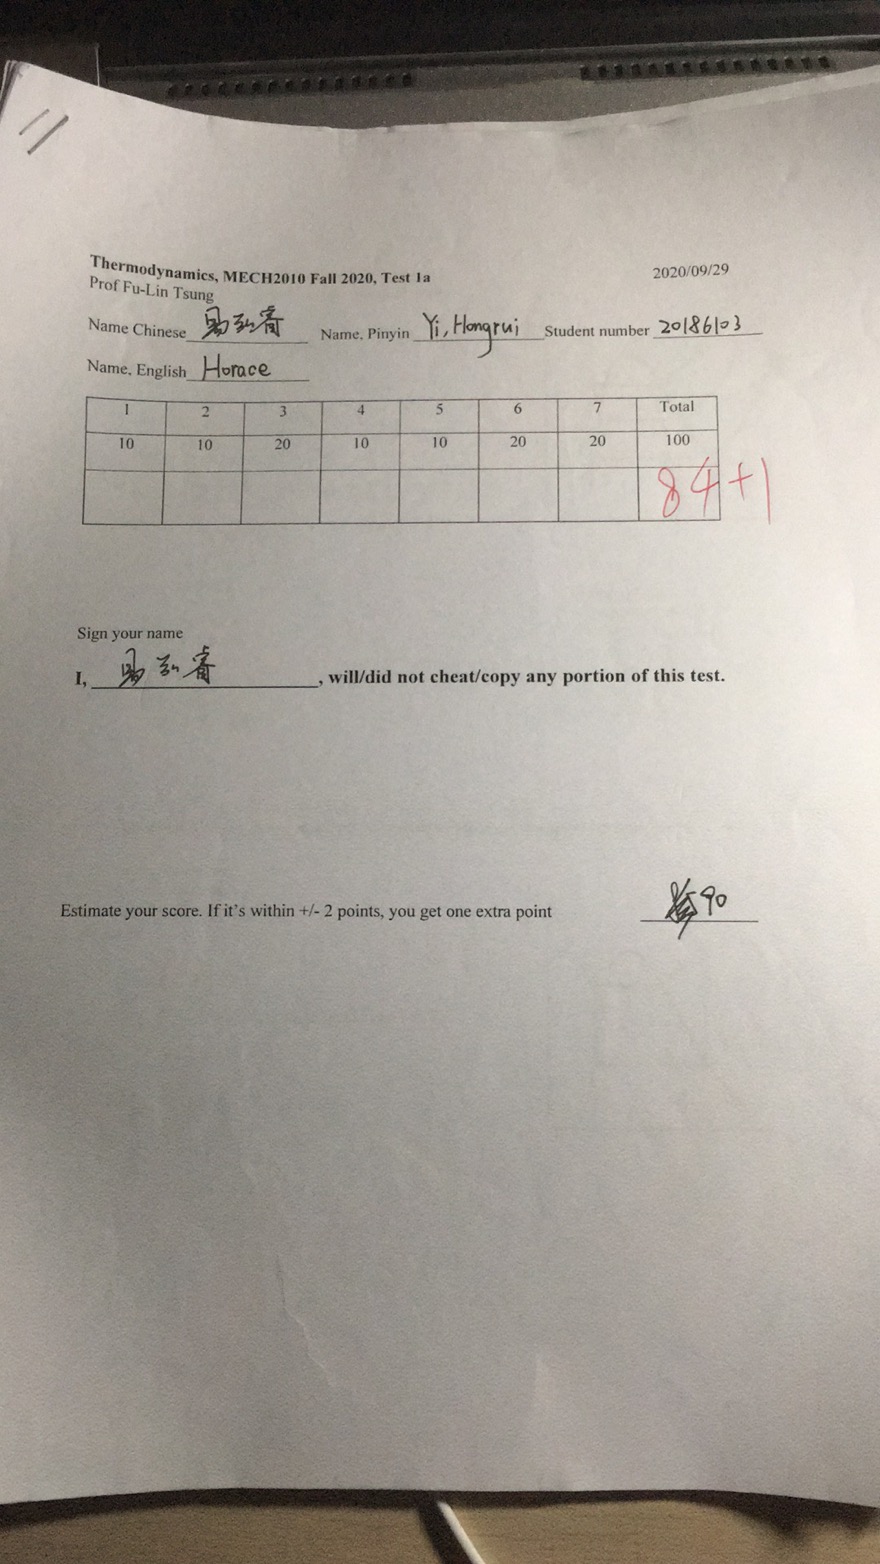 Thermodynamics, MECH2010 Fall 2020, Test 1a 2020/09/29
Prof Fu-Lin Tsung
Name Chinese 易弘睿 Name, Pinyin Yi, Hongrui Student number 20186103
Name, English Horace
1 2 3 4 5 6 7 Total
10 10 20 10 10 20 20 100
84+1
Sign your name
I, 易弘睿, will/did not cheat/copy any portion of this test.
Estimate your score. If it's within +/- 2 points, you get one extra point 90